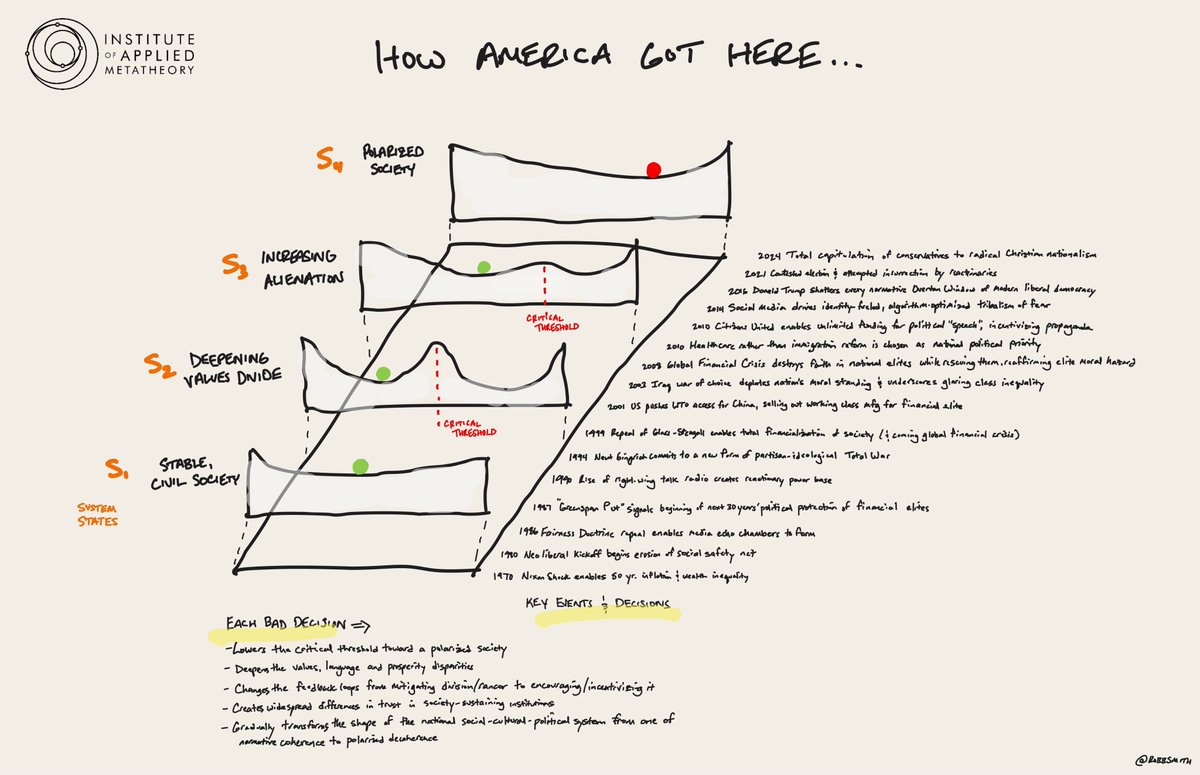 INSTITUTE
OF APPLIED
METATHEORY
HOW AMERICA GOT HERE...
S4 POLARIZED
SOCIETY
S3 INCREASING
ALIENATION
CRITICAL
THRESHOLD
S2 DEEPENING
VALUES DIVIDE
CRITICAL
THRESHOLD
S1 STABLE,
CIVIL SOCIETY
SYSTEM
STATES
2024 Total capitulation of conservatives to radical Christian nationalism
2021 Contested election & attempted insurrection by reactionaries
2016 Donald Trump shatters every normative Overton Window of modern liberal democracy
2014 Social Media drives identity-fueled, algorithm-optimized tribalism of fear
2010 Citizens United enables unlimited funding for political "speech", incentivizing propaganda
2010 Healthcare rather than immigration reform is chosen as national political priority
2008 Global Financial Crisis destroys faith in national elites while rescuing them, reaffirming elite moral hazard
2003 Iraq war of choice depletes nation's moral standing & underscores glaring class inequality
2001 US pushes WTO access for China, selling out working class mfg for financial elite
1999 Repeal of Glass-Steagall enables total financialization of society (& coming global financial crisis)
1994 Newt Gingrich commits to a new form of partisan-ideological Total War
1990 Rise of right-wing talk radio creates reactionary power base
1987 "Greenspan Put" signals beginning of next 30 years' political protection of financial elites
1986 Fairness Doctrine repeal enables media echo chambers to form
1980 Neoliberal Kickoff begins erosion of social safety net
1970 Nixon Shock enables 50 yr. inflation & wealth inequality
KEY EVENTS & DECISIONS
EACH BAD DECISION ⇒
- Lowers the critical threshold toward a polarized society
- Deepens the values, language and prosperity disparities
- Changes the feedback loops from mitigating division/rancor to encouraging/incentivizing it
- Creates widespread differences in trust in society-sustaining institutions
- Gradually transforms the shape of the national social-cultural-political system from one of
normative coherence to polarized decoherence
@ROBBSMITH